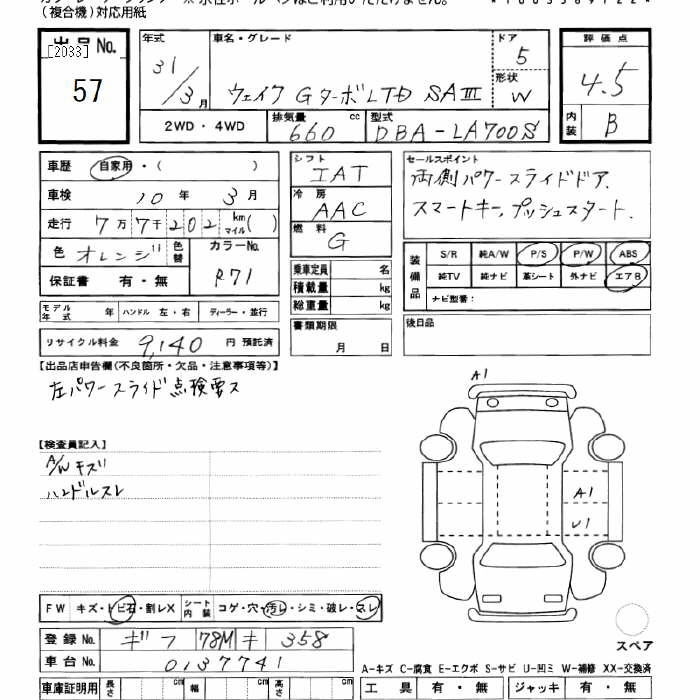 (複合機)対応用紙
出品No.
[2033]
57
年式 31/3月
車名・グレード ウェイク GターボLTD SAⅢ
ドア 5
形状 W
評価点 4.5
内装 B
2WD・4WD
排気量 660 cc
型式 DBA-LA700S
車歴 自家用・( )
車検 10年 3月
走行 7万7千202 km マイル( )
色 オレンジII 色替 カラーNo. R71
保証書 有・無
モデル年式 年 ハンドル 左・右 ディーラー・並行
リサイクル料金 9,140 円 預託済
シフト IAT
冷房 AAC
燃料 G
乗車定員 名
積載量 kg
総重量 kg
書類期限
月 日
セールスポイント
両側パワースライドドア.
スマートキー,プッシュスタート.
装備品
S/R 純A/W P/S P/W ABS
純TV 純ナビ 革シート 外ナビ エアB
ナビ型番:
後日品
【出品店申告欄(不良箇所・欠品・注意事項等)】
左パワースライド点検要ス
【検査員記入】
A/Wキズ
ハンドルスレ
A1
A1
U1
スペア
FW キズ・トビ石・割レX シート内装 コゲ・穴・汚レ・シミ・破レ・スレ
登録No. ギフ 78M キ 358
車台No. 0137741
車庫証明用 長さ cm 幅 cm 高さ cm
A-キズ C-腐食 E-エクボ S-サビ U-凹ミ W-補修 XX-交換済
工具 有・無 ジャッキ 有・無